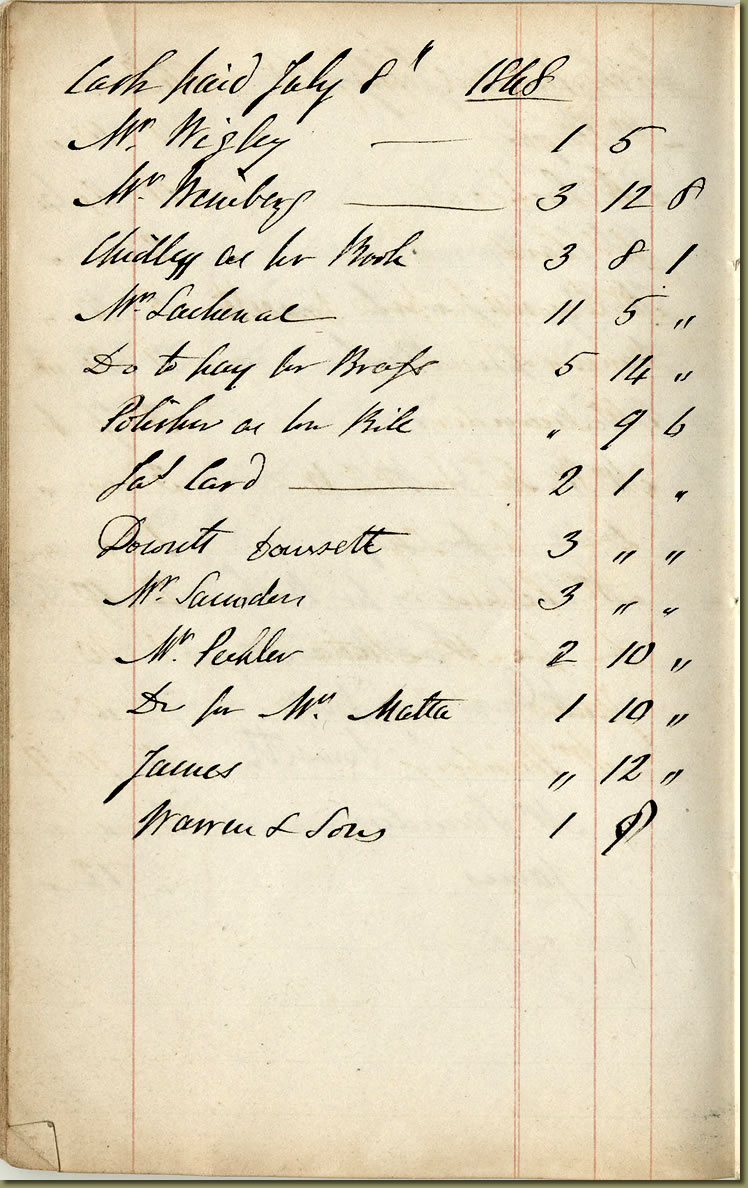 Cash paid July 8" 1848
Mr. Wigley — 1 5
Mr. Weinberg — 3 12 8
Chidley as per Book 3 8 1
Mr Lachenal 11 5 "
Do to pay for Brass 5 14 "
Polisher as per Bill " 9 6
Jas Card — 2 1 "
Dowsett 3 " "
Mr. Saunders 3 " "
Mr. Pechler 2 10 "
Do for Mrs. Matta 1 10 "
James " 12 "
Warren & Sons 1